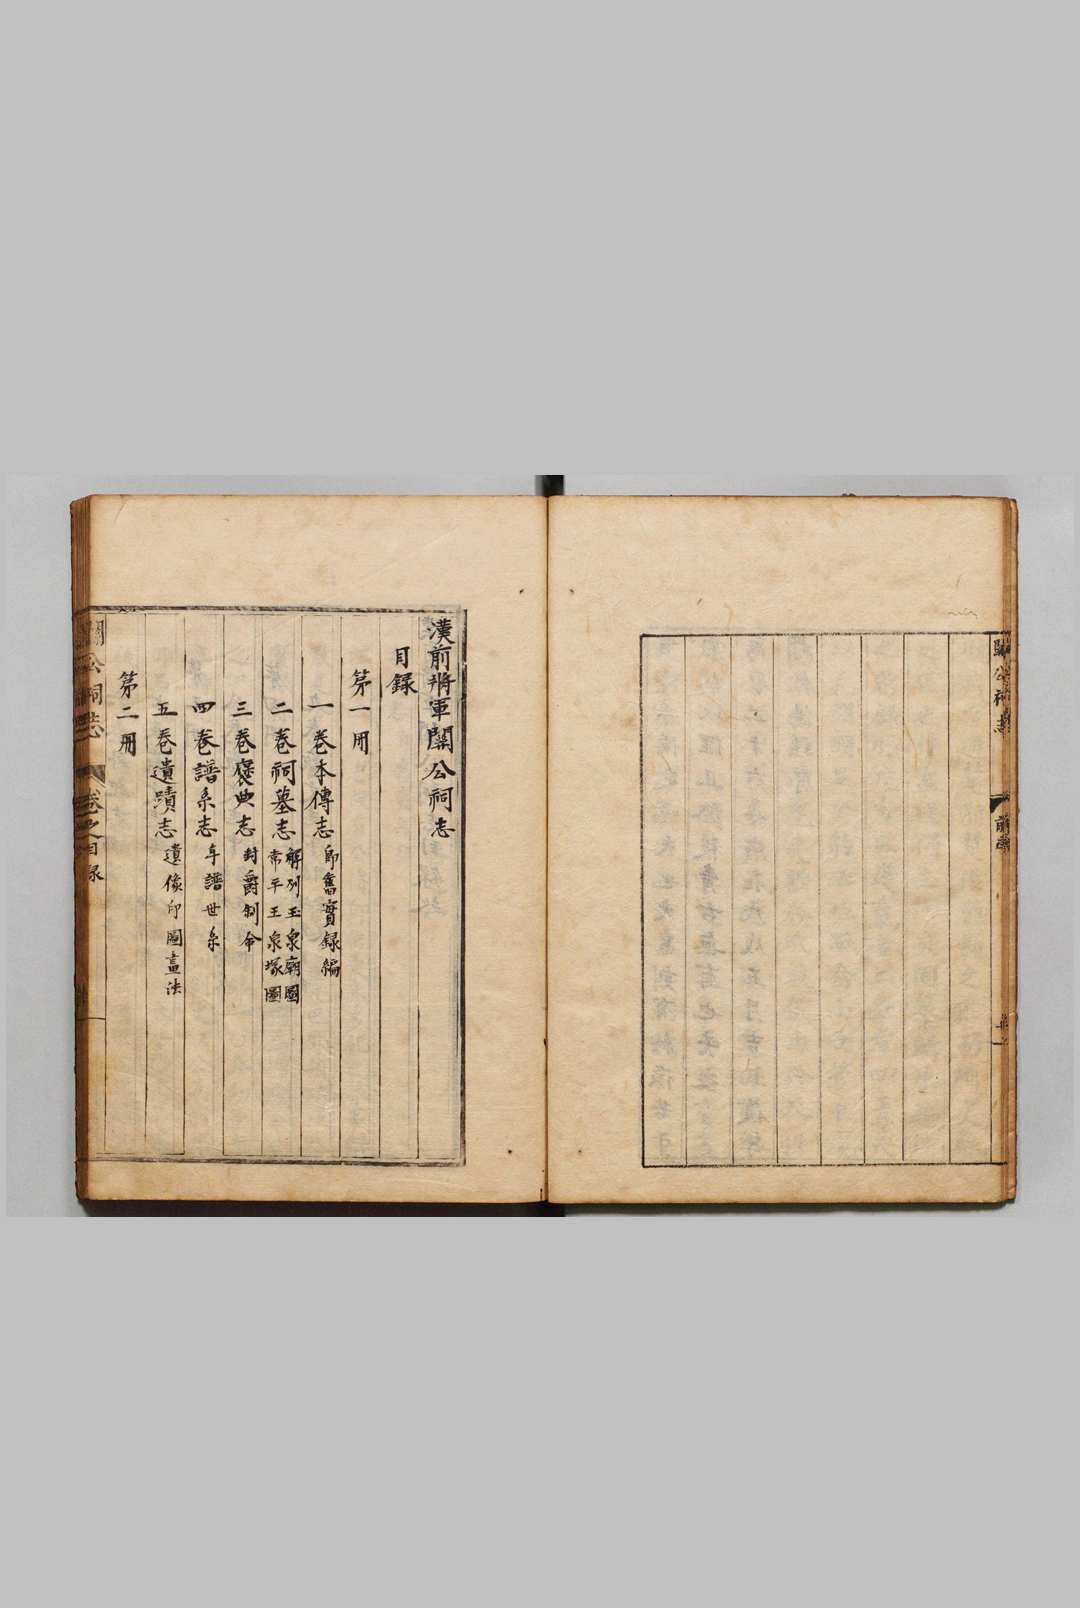 關公祠志
前
漢前將軍關公祠志
目録
第一冊
一卷本傳志 即舊實録編
二卷祠墓志 解列玉泉廟圖
常平玉泉塚圖
三卷褒典志 封爵制命
四卷譜系志 年譜世系
五卷遺蹟志 遺像印圖畫法
第二冊
關公祠誌
卷之目録